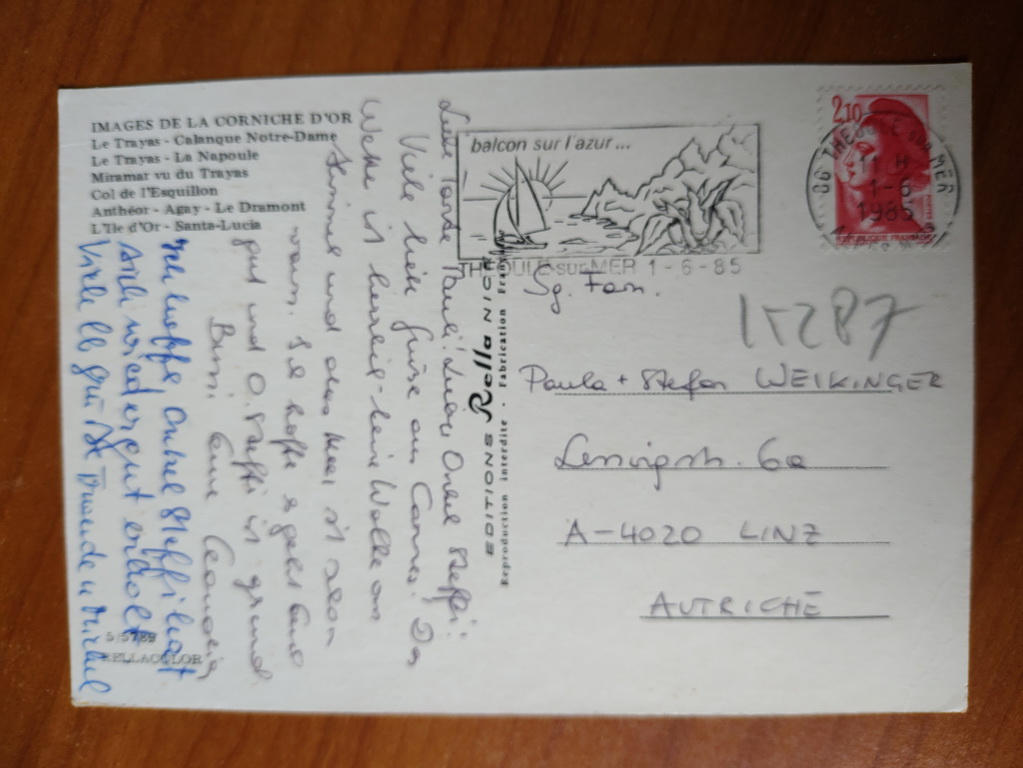 IMAGES DE LA CORNICHE D'OR
Le Trayas - Calanque Notre-Dame
Le Trayas - La Napoule
Miramar vu du Trayas
Col de l'Esquillon
Anthéor - Agay - Le Dramont
L'Ile d'Or - Santa-Lucia
Liebe Tante Pauli! Lieber Onkel Steffi!
Viele liebe Grüße aus Cannes. Das
Wetter ist herrlich - keine Wolke am
Himmel und das Meer ist schon
warm. Ich hoffe es geht Euch
gut und O. Steffi ist gesund.
Bussi Eure
Ich hoffe Onkel Steffi hat
sich wieder gut erholt
Viele lb Grüße Traude u Michael
5/5789
RELLACOLOR
EDITIONS Rella NICE
Reproduction interdite - Fabrication Française
balcon sur l'azur...
THEOULE-sur-MER 1-6-85
2,10
REPUBLIQUE FRANCAISE
06 THEOULE sur MER
11 H
1-6
1985
Sg. Fam.
15287
Paula + Stefan WEIKINGER
Lessingstr. 6a
A-4020 LINZ
AUTRICHE